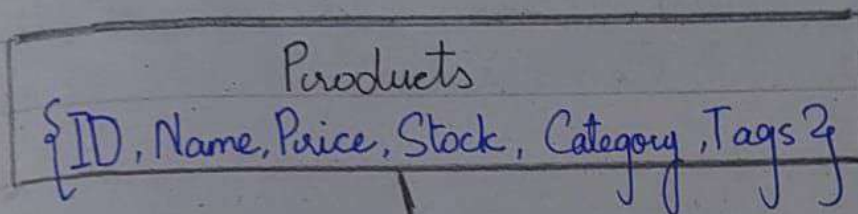 Products
{ID, Name, Price, Stock, Category, Tags}